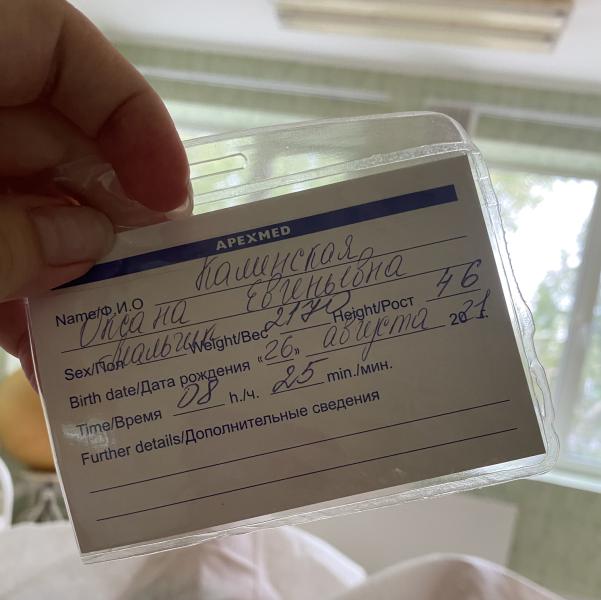 APEXMED
Name/Ф.И.О Калинская
Оксана Евгеньевна
Sex/Пол мальчик Weight/Вес 2170 Height/Рост 46
Birth date/Дата рождения «26» августа 2021.
Time/Время 08 h./ч. 25 min./мин.
Further details/Дополнительные сведения